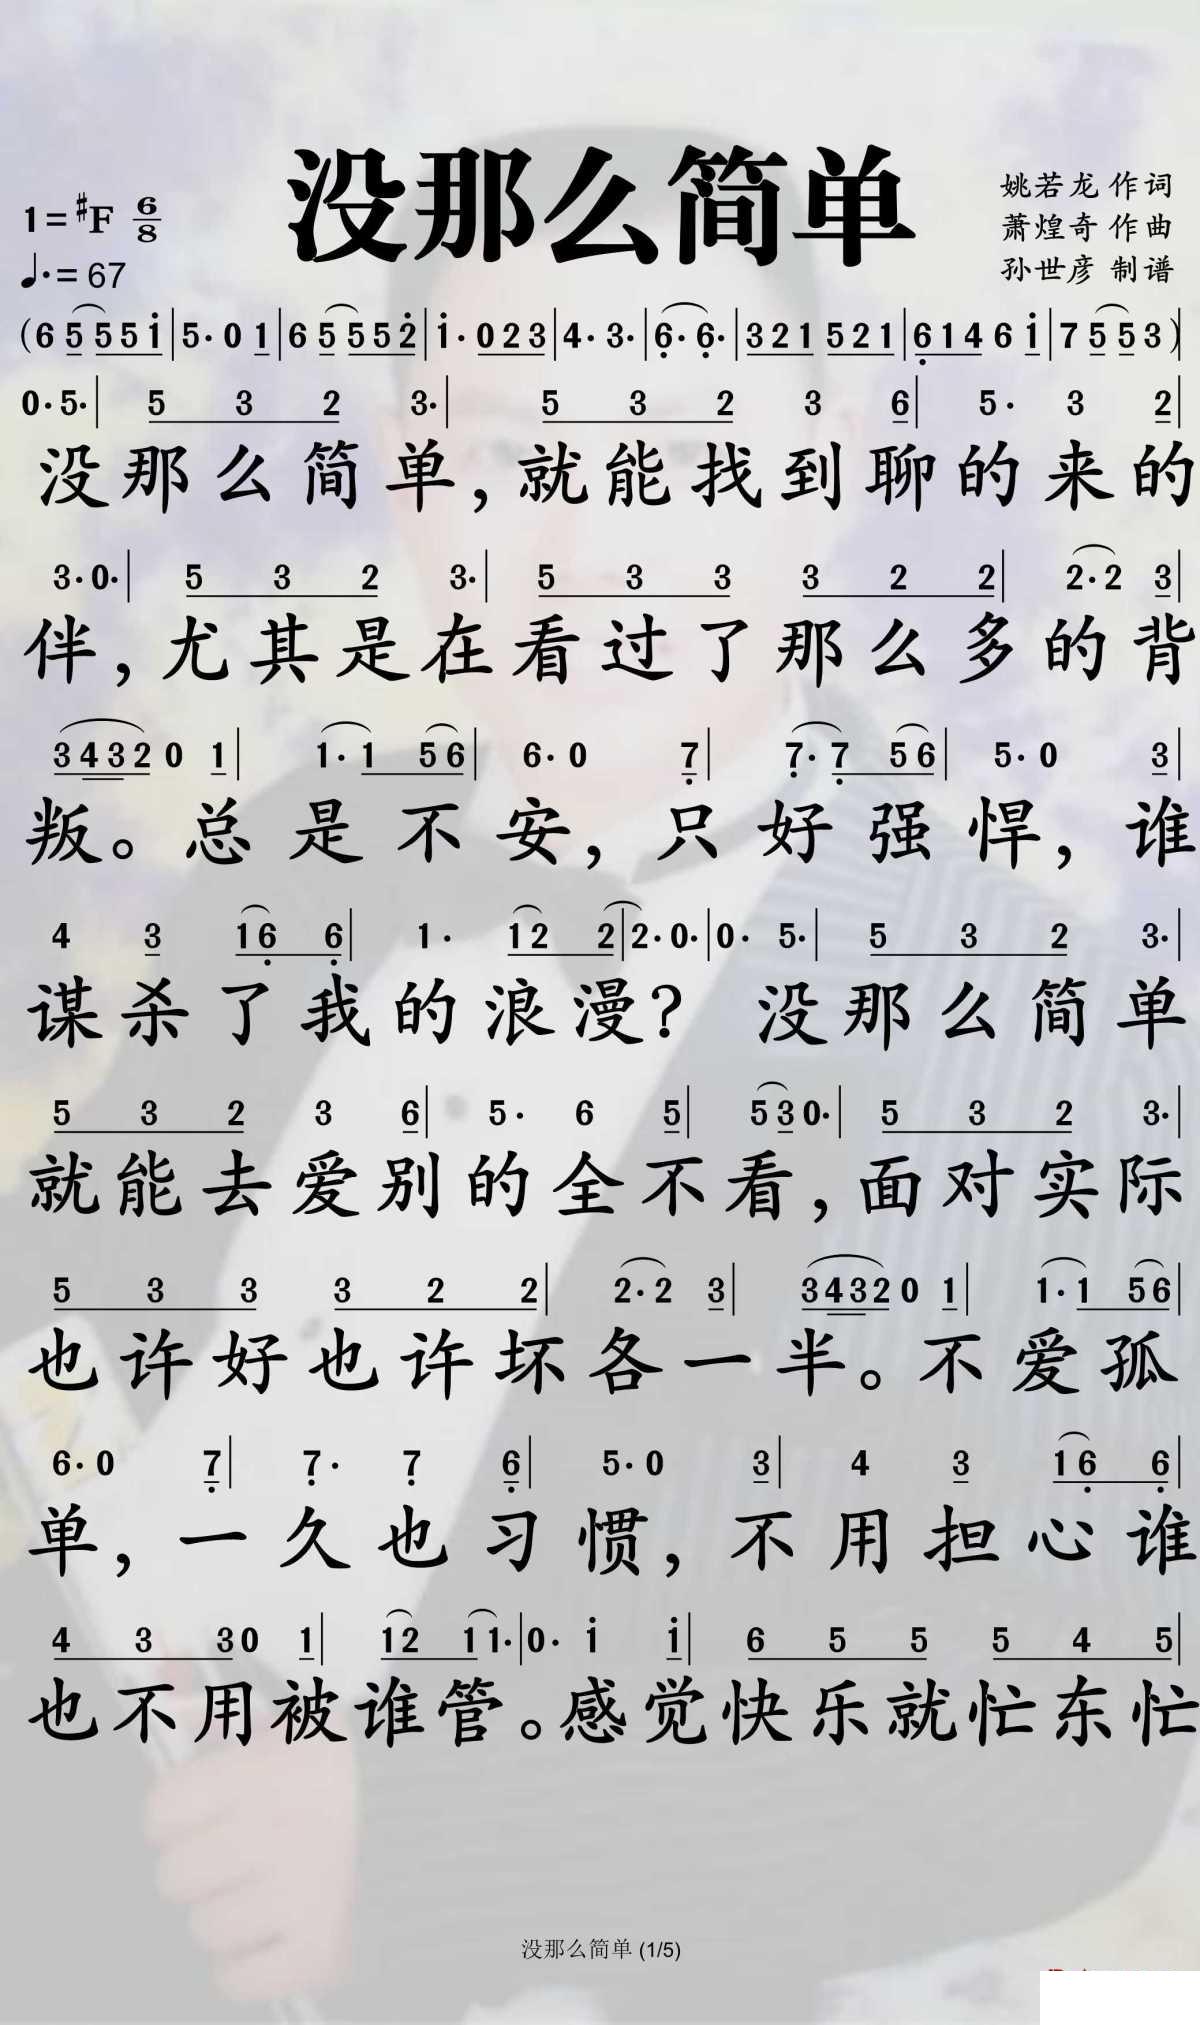 没那么简单
姚若龙 作词
萧煌奇 作曲
孙世彦 制谱
1=#F 6/8
♩.=67
(6 5 5 5 5 i|5· 0 1|6 5 5 5 5 2|i· 0 2 3|4· 3·|6· 6·|3 2 1 5 2 1|6 1 4 6 i|7 5 5 3)|
0· 5·|5 3 2 3·|5 3 2 3 6|5· 3 2|
没那么简单，就能找到聊的来的
3· 0·|5 3 2 3·|5 3 3 3 2 2|2· 2 3|
伴，尤其是在看过了那么多的背
3 4 3 2 0 1|1· 1 5 6|6· 0 7|7· 7 5 6|5· 0 3|
叛。总是不安，只好强悍，谁
4 3 1 6 6|1· 1 2 2|2· 0·|0· 5·|5 3 2 3·|
谋杀了我的浪漫？ 没那么简单
5 3 2 3 6|5· 6 5|5 3 0·|5 3 2 3·|
就能去爱别的全不看，面对实际
5 3 3 3 2 2|2· 2 3|3 4 3 2 0 1|1· 1 5 6|
也许好也许坏各一半。不爱孤
6· 0 7|7· 7 6|5· 0 3|4 3 1 6 6|
单，一久也习惯，不用担心谁
4 3 3 0 1|1 2 1 1·|0· i i|6 5 5 5 4 5|
也不用被谁管。感觉快乐就忙东忙
没那么简单 (1/5)